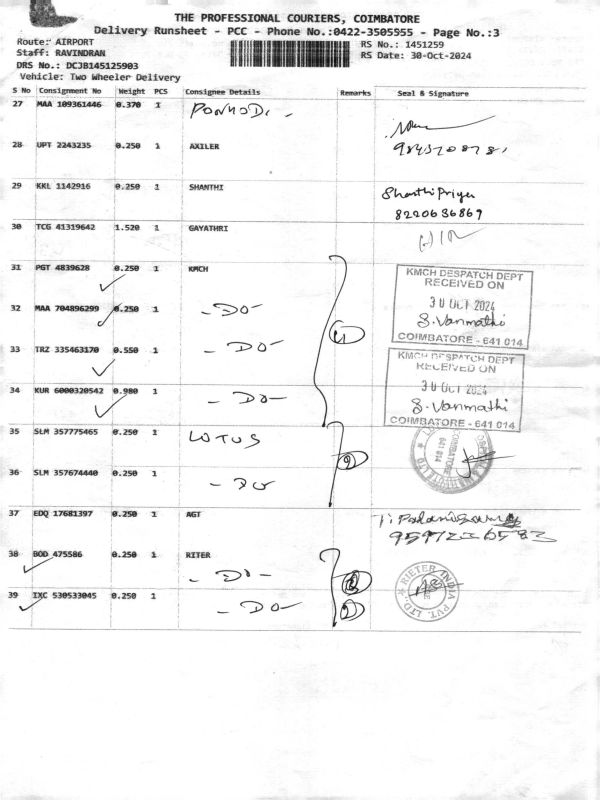 THE PROFESSIONAL COURIERS, COIMBATORE
Delivery Runsheet - PCC - Phone No.:0422-3505955 - Page No.:3
Route: AIRPORT
RS No.: 1451259
Staff: RAVINDRAN
RS Date: 30-Oct-2024
DRS No.: DCJB145125903
Vehicle: Two Wheeler Delivery
S No Consignment No Weight PCS Consignee Details Remarks Seal & Signature
27 MAA 109361446 0.370 1
28 UPT 2243235 0.250 1 AXILER
29 KKL 1142916 0.250 1 SHANTHI Shanthi Priya
8220636869
30 TCG 41319642 1.520 1 GAYATHRI
31 PGT 4839628 0.250 1 KMCH
KMCH DESPATCH DEPT
RECEIVED ON
30 OCT 2024
S. Vanmathi
COIMBATORE - 641 014
32 MAA 704896299 0.250 1 - DO -
33 TRZ 335463170 0.550 1 - DO -
KMCH DESPATCH DEPT
RECEIVED ON
30 OCT 2024
S. Vanmathi
COIMBATORE - 641 014
34 KUR 6000320542 0.980 1 - DO -
35 SLM 357775465 0.250 1 LOTUS
COIMBATORE
641 014
36 SLM 357674440 0.250 1 - DO
37 EDQ 17681397 0.250 1 AGT
38 BOD 475586 0.250 1 RITER
- DO -
RIETER INDIA PVT. LTD.
39 IXC 530533045 0.250 1 - DO -